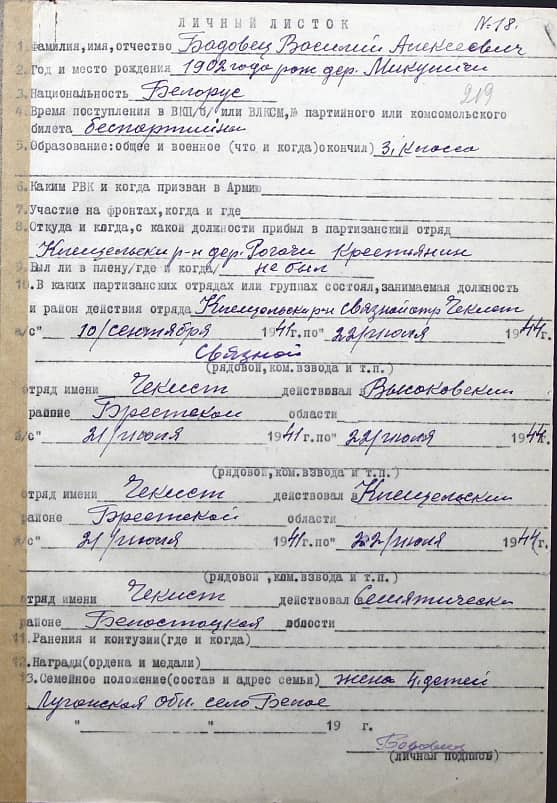 ЛИЧНЫЙ ЛИСТОК
№ 18.
1. Фамилия, имя, отчество Бадовец Василий Алексеевич
2. Год и место рождения 1902 года рож дер. Микуличи
3. Национальность Белорус
219
4. Время поступления в ВКП/б/ или ВЛКСМ, № партийного или комсомольского
билета беспартийны
5. Образование: общее и военное (что и когда) окончил) 3, класса
6. Каким РВК и когда призван в Армию
7. Участие на фронтах, когда и где
8. Откуда и когда, с какой должности прибыл в партизанский отряд
Клещельски р-н дер. Рогачи крестьянин
9. Был ли в плену/где и когда/ не был
10. В каких партизанских отрядах или группах состоял, занимаемая должность
и район действия отряда Клещельски р-н связной отр. Чекист
а/с" 10/сентября 1941 г. по" 22/июля 1944 г.
Связной
(рядовой, ком. взвода и т.п.)
отряд имени Чекист действовал в Высоковским
районе Брестской области
б/с" 21/июля 1941 г. по" 22/июля 1944.
(рядовой, ком. взвода и т.п.)
отряд имени Чекист действовал в Клещельским
районе Брестской области
в/с" 21/июля 1941 г. по" 22/июля 1944 г.
(рядовой, ком. взвода и т.п.)
отряд имени Чекист действовал Семятически
районе Белостоцкая области
11. Ранения и контузии (где и когда)
12. Награды (ордена и медали)
13. Семейное положение (состав и адрес семьи) жена 4. детей
Луганская обл. село Белое
" " 19 г.
Бадовец
(личная подпись)